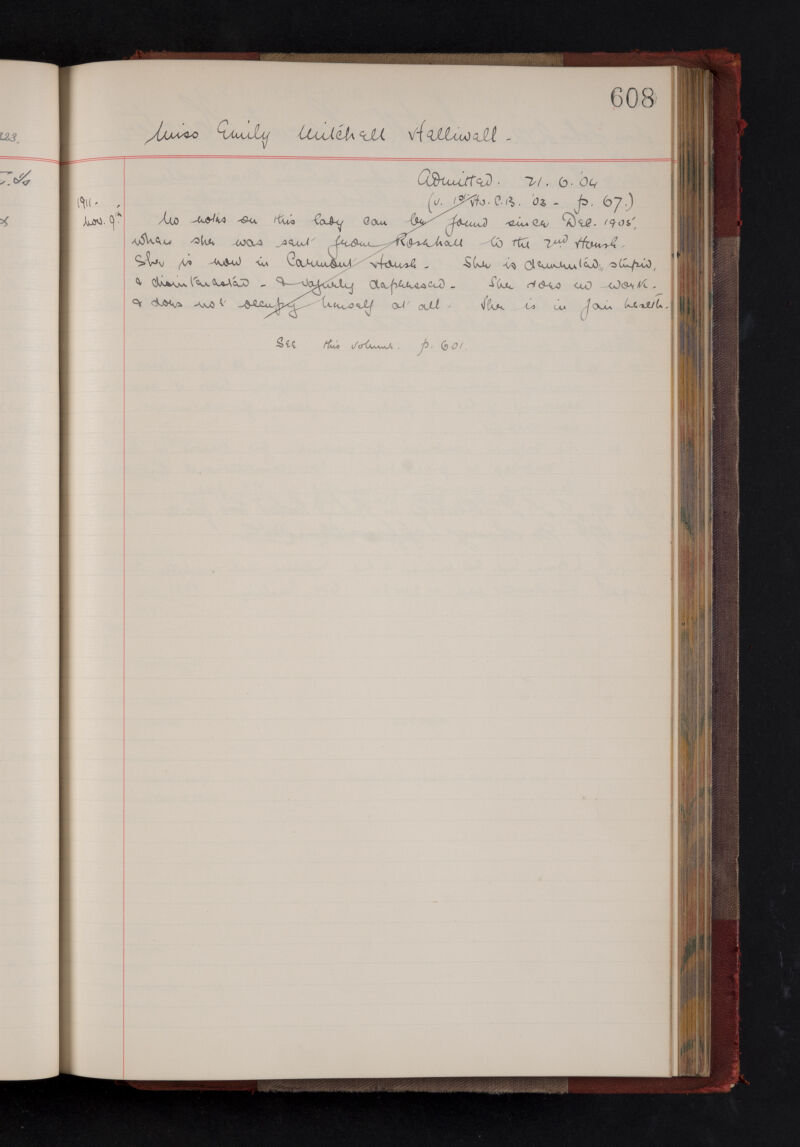 608
Miss Emily Mitchell Halliwall -
Admitted. 21. 6. '04
(v. 1st Ho. C.B. '03 - p. 67.)
1911 -
Nov. 9th No notes on this lady can be found since Dec. 1905,
when she was sent from Rosehall to the 2nd House.
She is now in Carmont House - She is demented, stupid,
& disinterested - & vaguely depressed. She does no work.
& does not occupy herself at all - She is in fair health.
See this volume. p. 601.